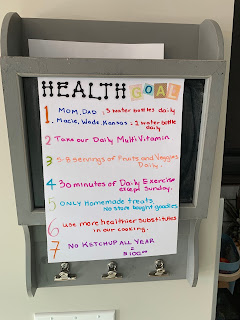 HEALTH GOAL
1. MOM, DAD : 3 water bottles daily
Macie, Wade, Kansas : 2 water bottle
daily
2 Take our Daily MultiVitamin
3 5-8 servings of Fruits and Veggies
Daily.
4 30 minutes of Daily Exercise
except Sunday.
5 ONLY Homemade treats
No store bought goodies
6 use more healthier substitutes
in our cooking.
7 NO KETCHUP ALL YEAR
=
$100.00